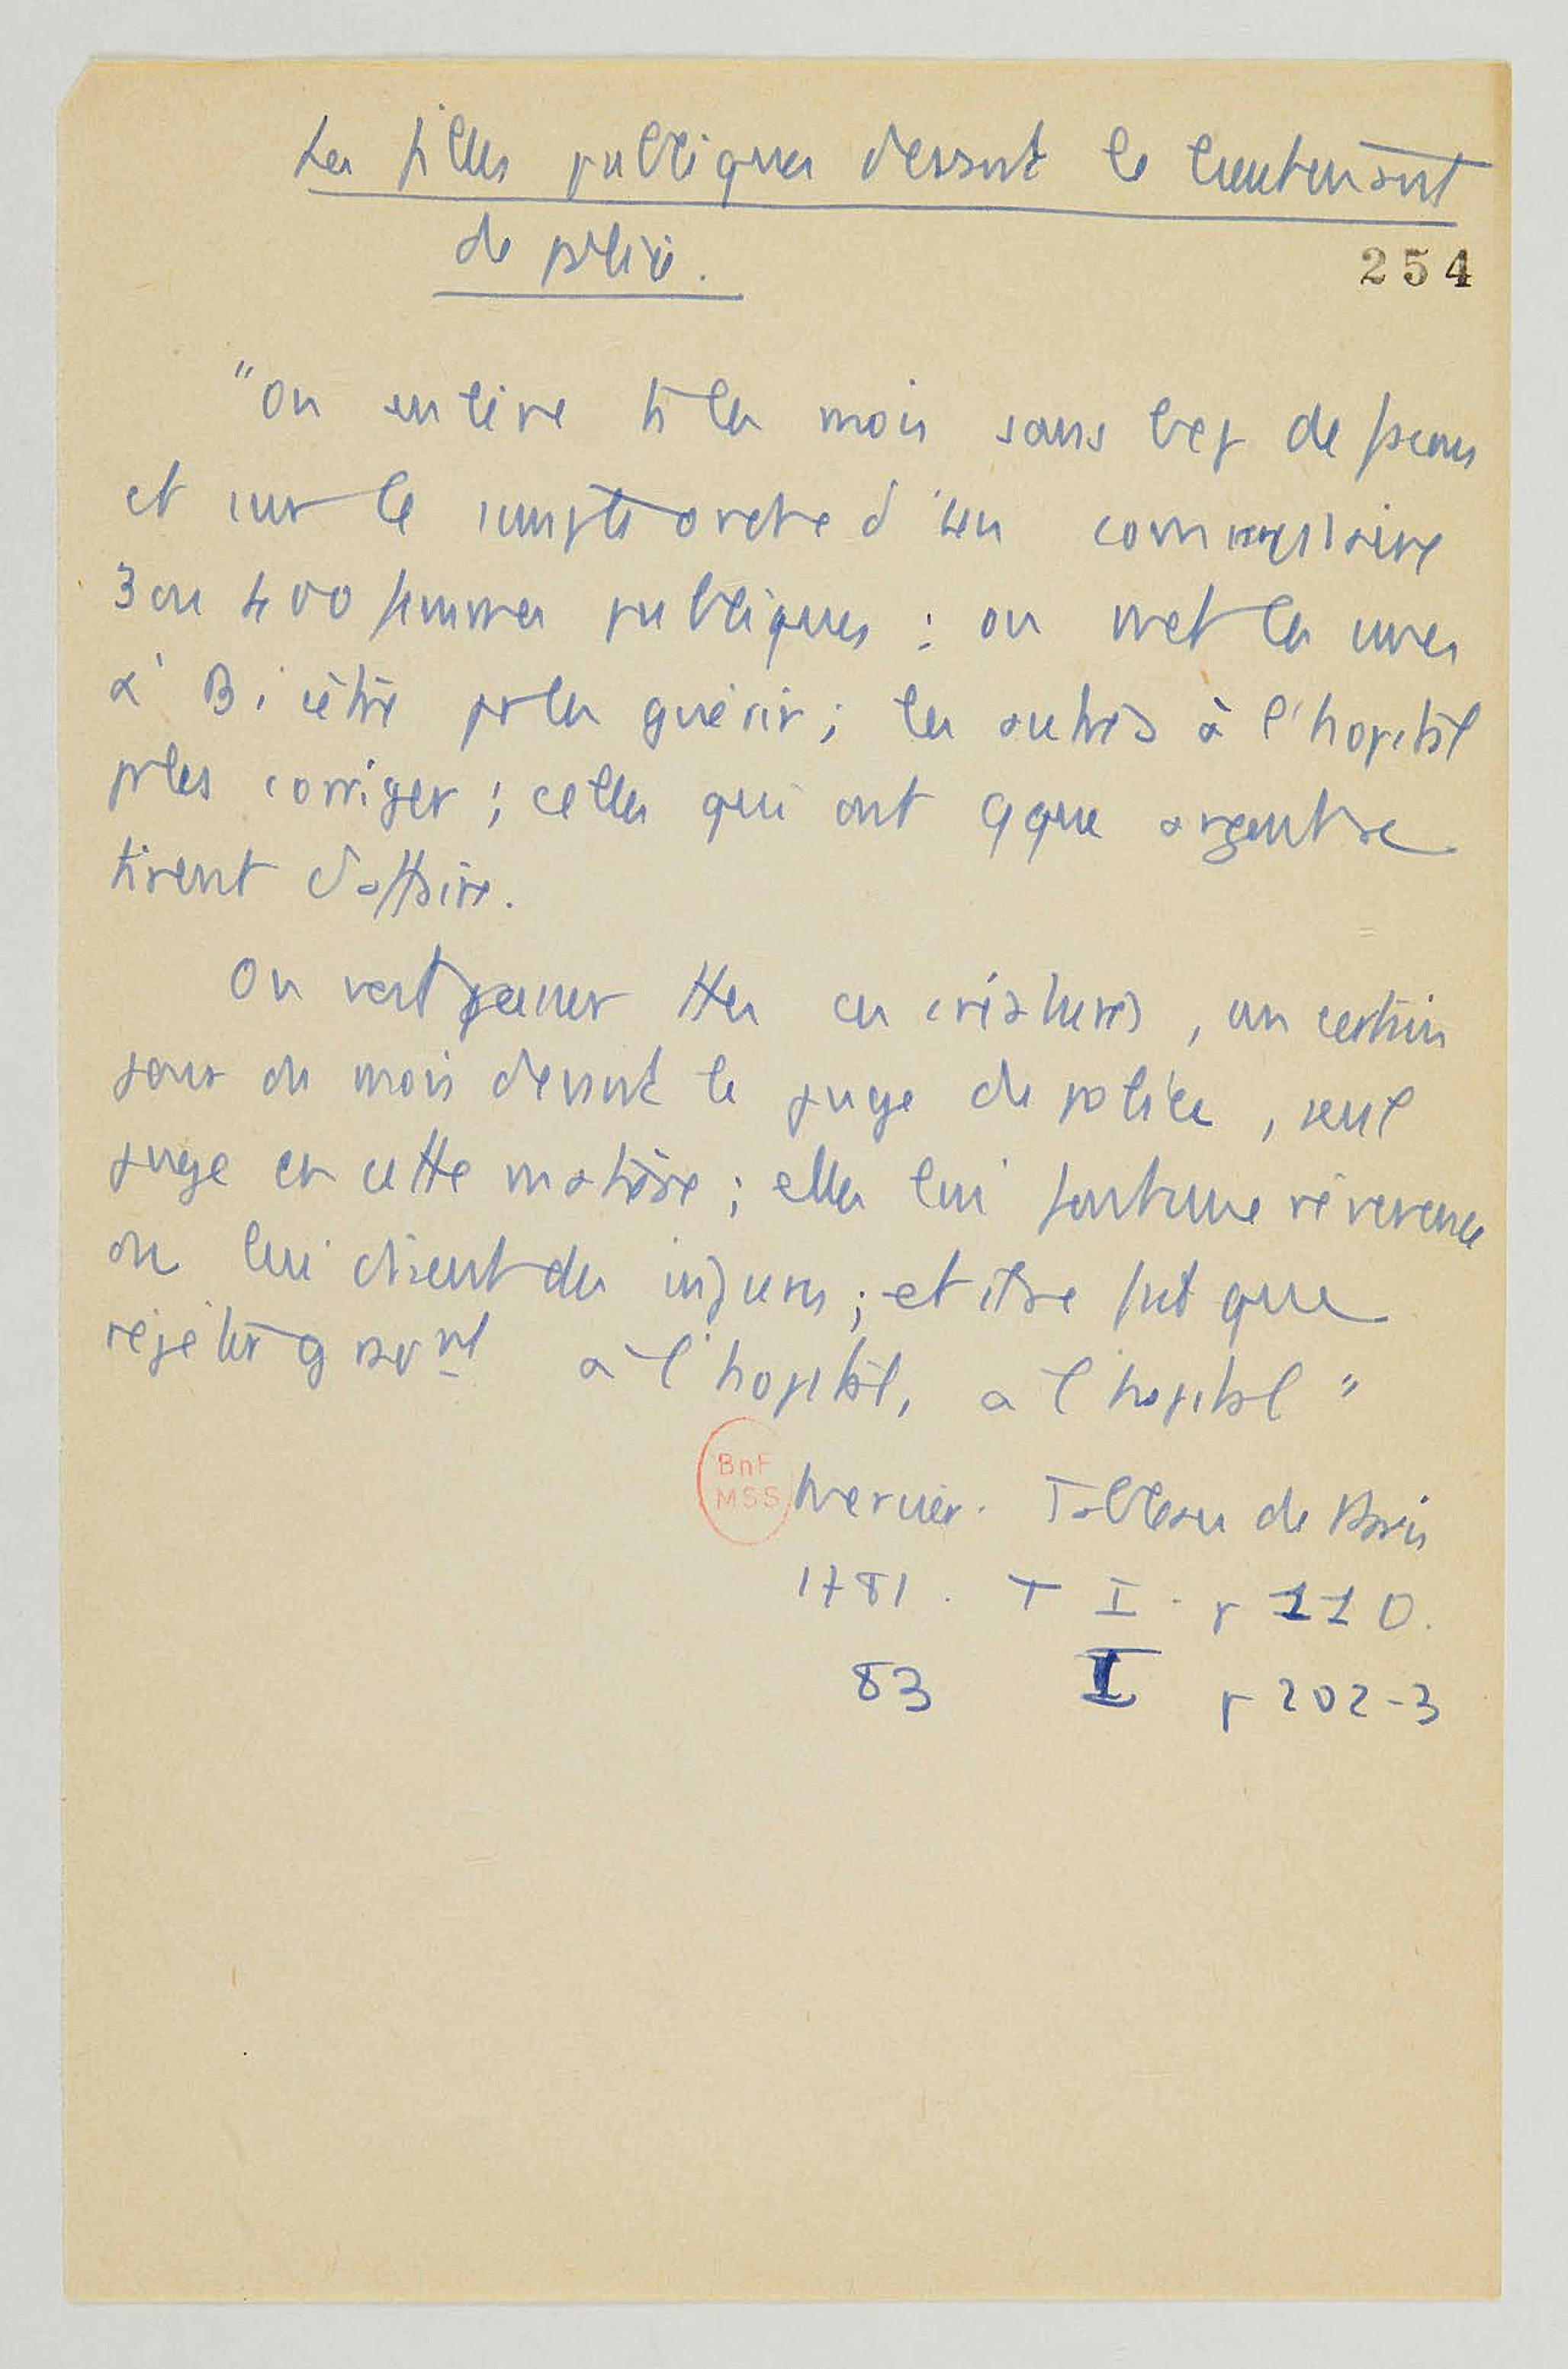 Les filles publiques devant le lieutenant
de police.
254
"On enlève ts les mois sans bcp de façons
et sur le simple ordre d'un commissaire
3 ou 400 femmes publiques : on met les unes
à Bicêtre pr les guérir ; les autres à l'hopital
pr les corriger ; celles qui ont qque argent se
tirent d'affaire.
On vert passer ttes ces créatures, un certain
jour du mois devant le juge de police, seul
juge en cette matière ; elles lui font une révérence
ou lui disent des injures ; et il ne fait que
répéter gravt à l'hopital, a l'hopital"
BnF
MSS
Mercier. Tableau de Paris
1781. T I. p 110.
83 I p 202-3